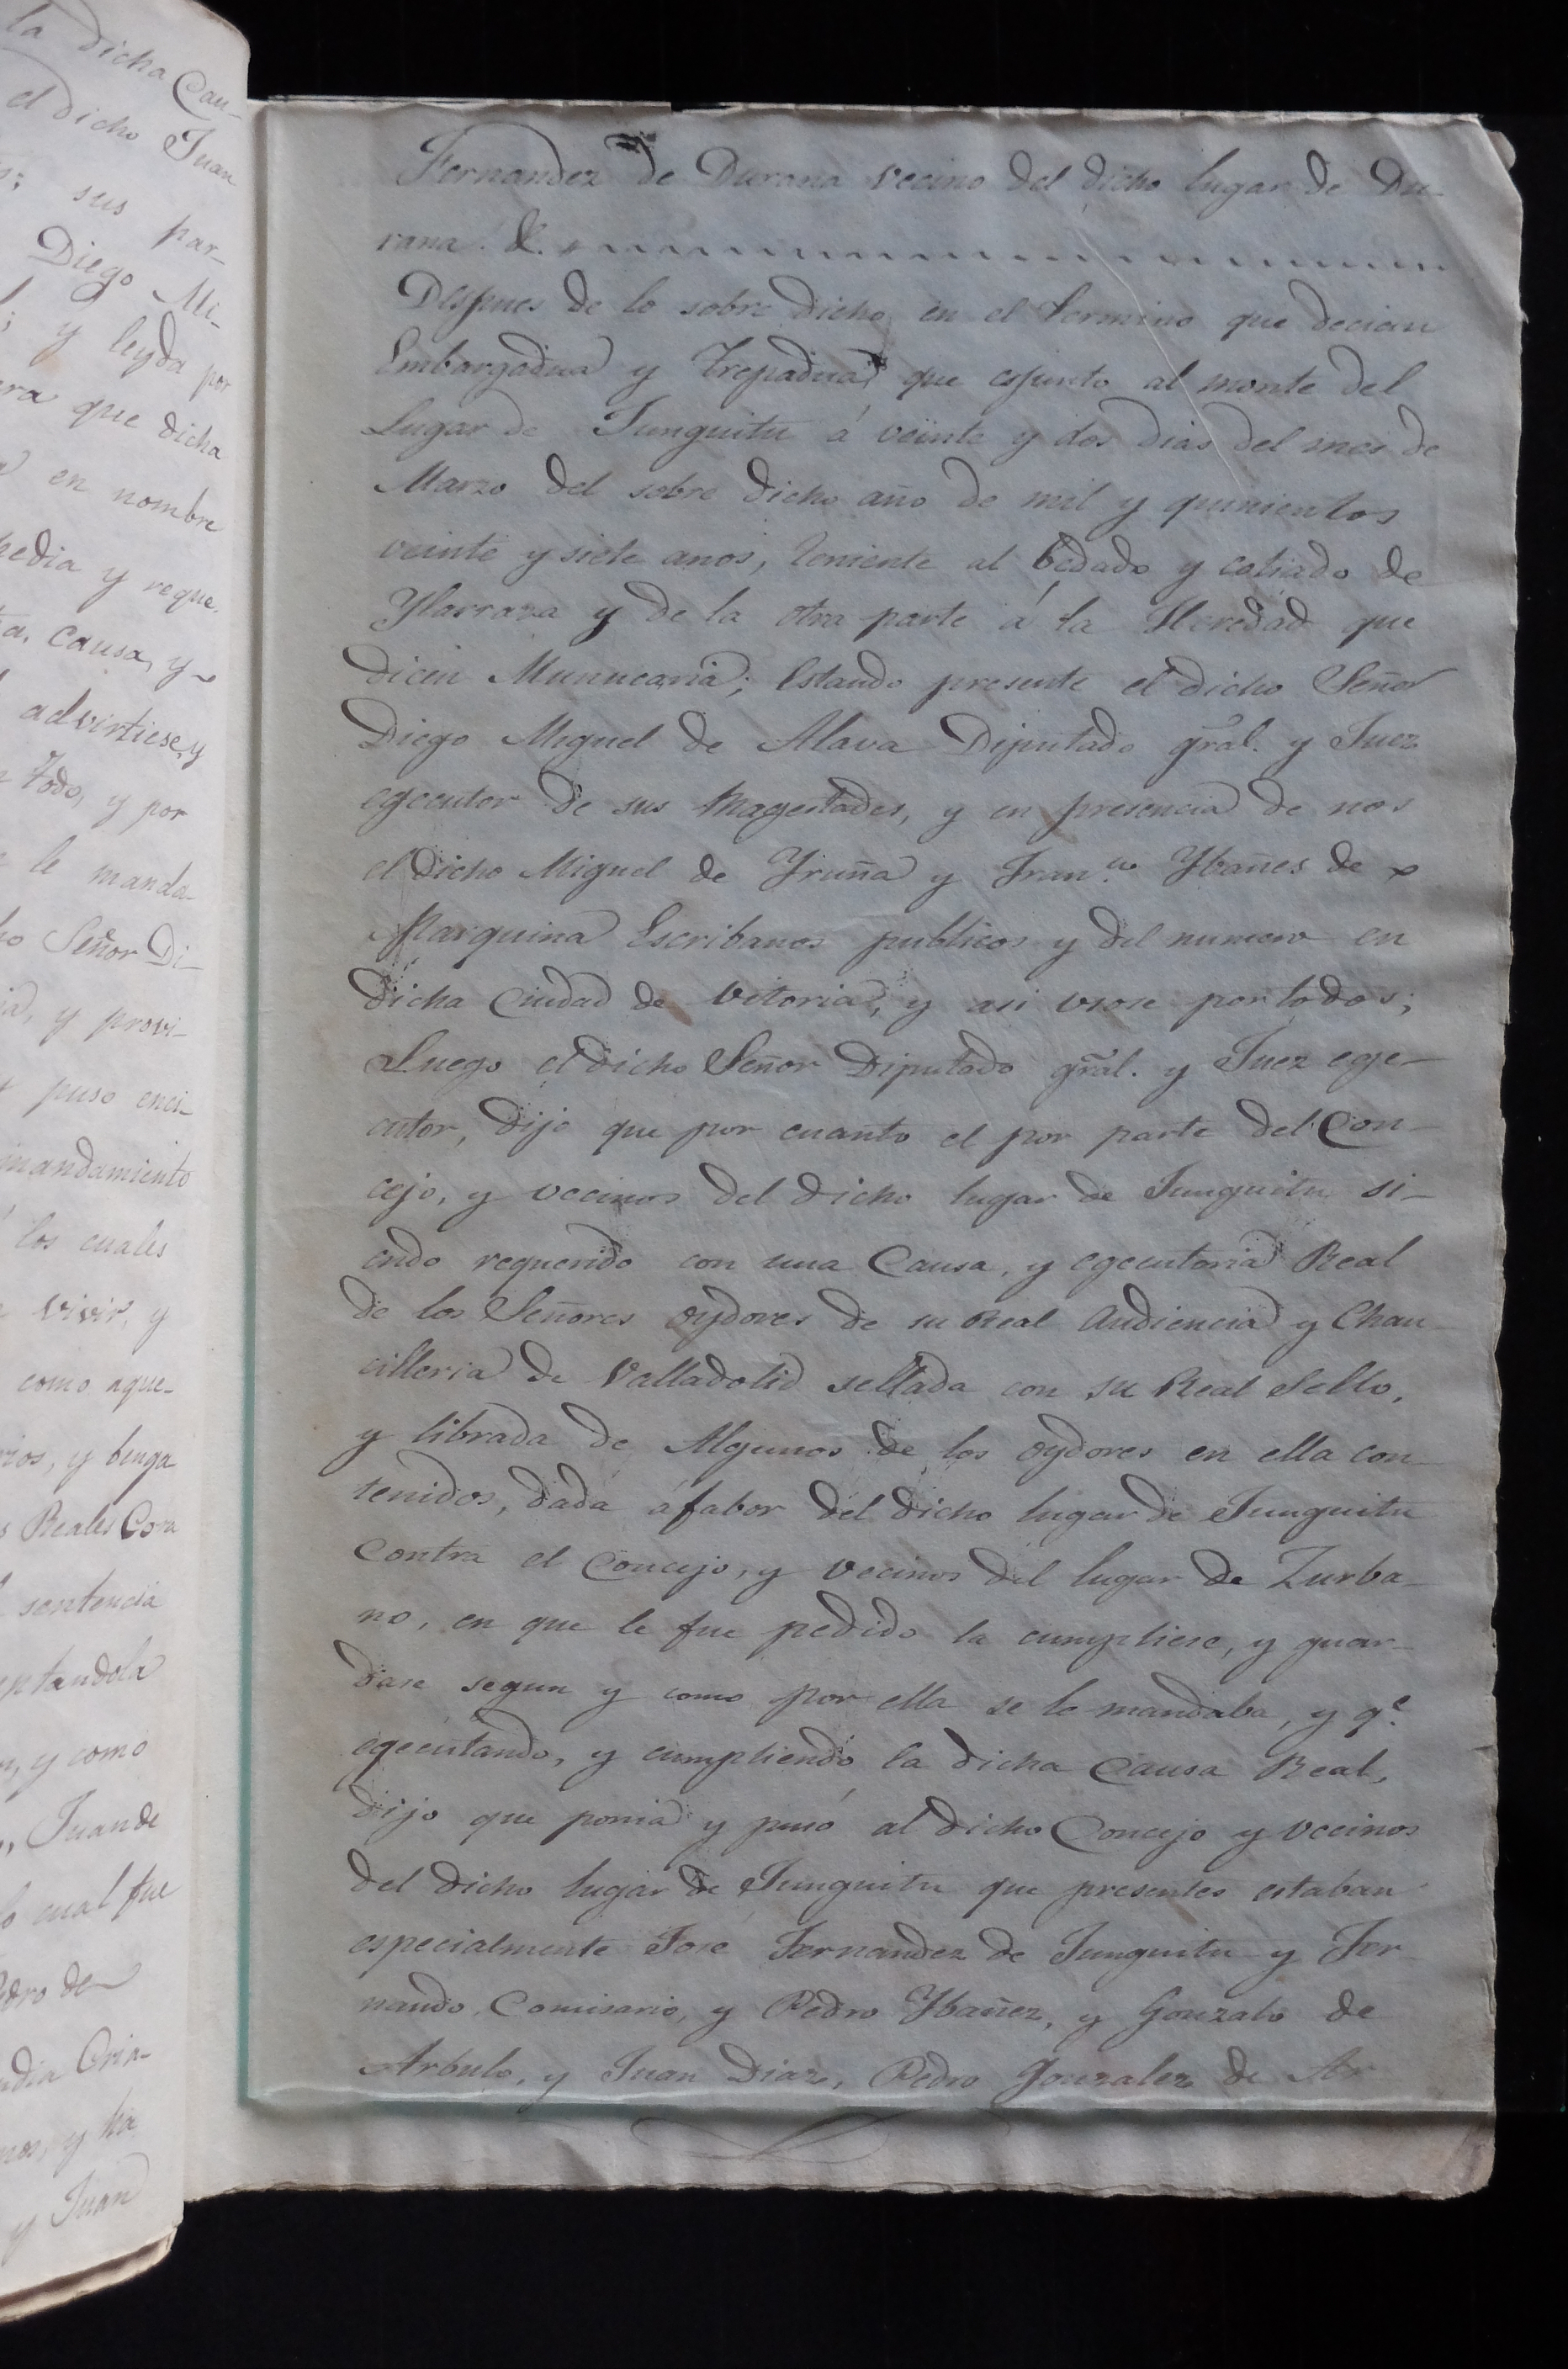 la dicha Cau-
el dicho Juan
sus par-
Diego Mi-
y leyda por
que dicha
en nombre
pedia y reque-
causa, y
advirtiese, y
todo, y por
le manda-
Señor Di-
y provi-
puso enci-
mandamiento
los cuales
vivir, y
como aque-
y tenga
Reales
sentencia
y como
Juan de
cual fue
y ha
y Juan
Fernandez de Durana vecino del dicho lugar de Du-
rana. &.
Despues de lo sobre dicho en el termino que decian
Embargadua y Trepadua, que esjunto al monte del
Lugar de Junguitu á veinte y dos dias del mes de
Marzo del sobre dicho año de mil y quinientos
veinte y siete anos, teniente al bedado y cotiado de
Ylarraza y de la otra parte á la Heredad que
dicen Munucaria; Estando presente el dicho Señor
Diego Miguel de Alava Diputado gral. y Juez
egecutor de sus Magestades, y en presencia de nos
el dicho Miguel de Yruña y Fran.co Ybañes de
Marquina Escribanos publicos y del numero en
dicha Ciudad de Vitoria, y asi viose por todos;
Luego el dicho Señor Diputado gral. y Juez ege-
cutor, dijo que por cuanto el por parte del Con-
cejo, y vecinos del dicho lugar de Junguitu si-
endo requerido con una Causa, y egecutoria Real
de los Señores oydores de su Real Audiencia y Chan-
cilleria de Valladolid sellada con su Real Sello,
y librada de Algunos de los oydores en ella con-
tenidos, dada á fabor del dicho lugar de Junguitu
contra el Concejo, y vecinos del lugar de Zurba-
no, en que le fue pedido la cumpliese, y guar-
dase segun y como por ella se le mandaba, y q.e
egecutando, y cumpliendo la dicha Causa Real,
dijo que ponia y puso al dicho Concejo y vecinos
del dicho lugar de Junguitu que presentes estaban
especialmente José Fernandez de Junguitu y Fer-
nando, Comisario, y Pedro Ybañez, y Gonzalo de
Arbulo, y Juan Diaz, Pedro Gonzalez de Ar